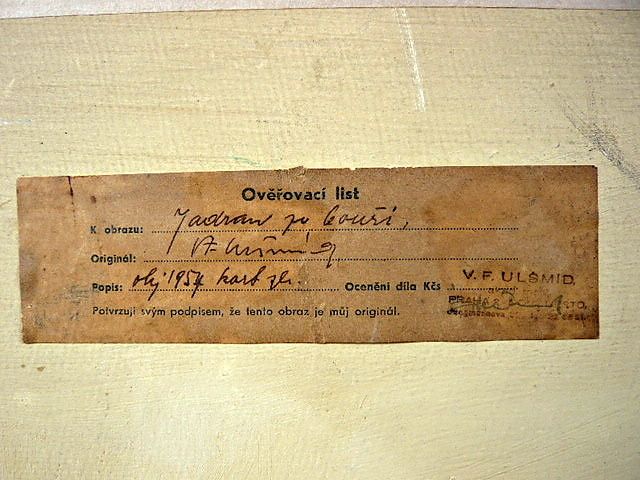 Ověřovací list
K obrazu: Jadran po bouři,
Originál:
Popis: olej 1954 Ocenění díla Kčs
V. F. ULŠMÍD
PRAHA
Potvrzuji svým podpisem, že tento obraz je můj originál.